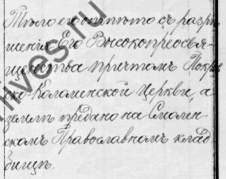 Тело его отпето съ разрѣ-
шенія Его Высокопреосвя-
щенства причтомъ Покров-
ско-Коломенской Церкви, а
затемъ предано на Смолен-
скомъ Православномъ клад-
бищѣ